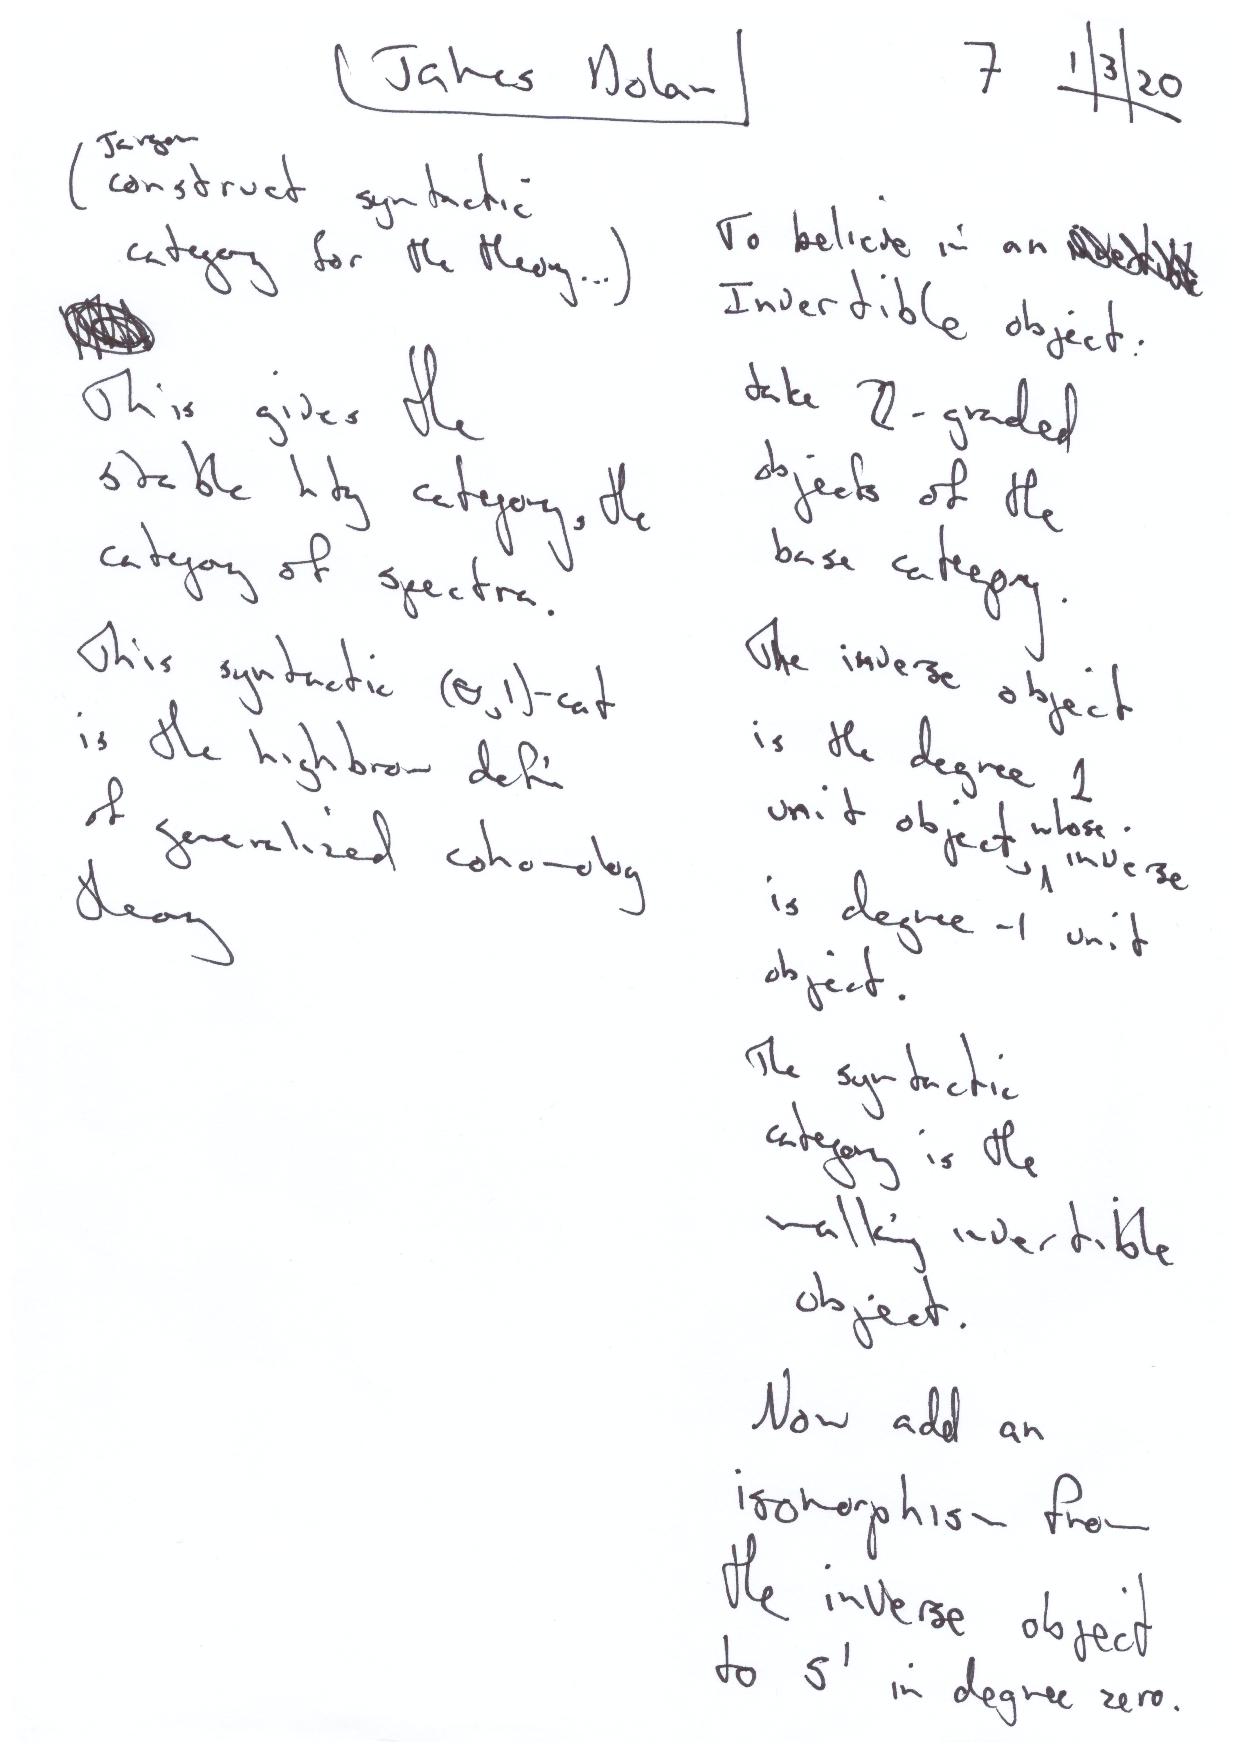 James Dolan 7 1/3/20
Jargon
(construct syntactic
category for the theory...)
This gives the
stable hty category, the
category of spectra.
This syntactic (∞,1)-cat
is the highbrow defn
of generalized cohomology
theory
To believe in an
Invertible object:
take ℤ-graded
objects of the
base category.
The inverse object
is the degree 1
unit object, whose inverse
is degree -1 unit
object.
The syntactic
category is the
walking invertible
object.
Now add an
isomorphism from
the inverse object
to S¹ in degree zero.